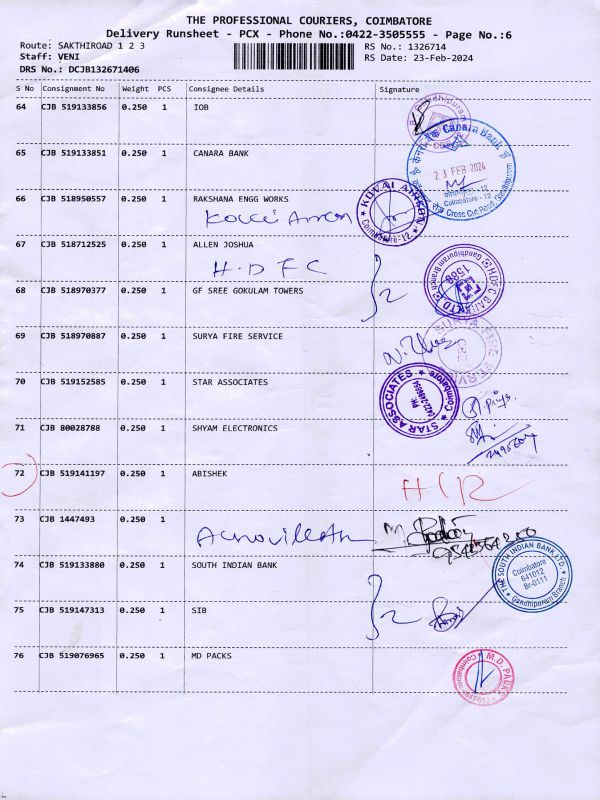 THE PROFESSIONAL COURIERS, COIMBATORE
Delivery Runsheet - PCX - Phone No.:0422-3505555 - Page No.:6
Route: SAKTHIROAD 1 2 3 RS No.: 1326714
Staff: VENI RS Date: 23-Feb-2024
DRS No.: DCJB132671406
S No Consignment No Weight PCS Consignee Details Signature
64 CJB 519133856 0.250 1 IOB
65 CJB 519133851 0.250 1 CANARA BANK
Canara Bank
23 FEB 2024
Coimbatore - 12
Cross Cut Road, Gandhipuram
66 CJB 518950557 0.250 1 RAKSHANA ENGG WORKS
KOVAI
Coimbatore-12
67 CJB 518712525 0.250 1 ALLEN JOSHUA
H.D F C
HDFC BANK LTD
Gandhipuram Branch
1588
68 CJB 518970377 0.250 1 GF SREE GOKULAM TOWERS
2
69 CJB 518970887 0.250 1 SURYA FIRE SERVICE
SURYA FIRE SERVICE
70 CJB 519152585 0.250 1 STAR ASSOCIATES
STAR ASSOCIATES
Coimbatore
71 CJB 80028788 0.250 1 SHYAM ELECTRONICS
72 CJB 519141197 0.250 1 ABISHEK
73 CJB 1447493 0.250 1
74 CJB 519133880 0.250 1 SOUTH INDIAN BANK
THE SOUTH INDIAN BANK LTD.
Coimbatore
641012
Br-0111
Gandhipuram Branch
75 CJB 519147313 0.250 1 SIB
2
76 CJB 519076965 0.250 1 MD PACKS
M.D. PACKS